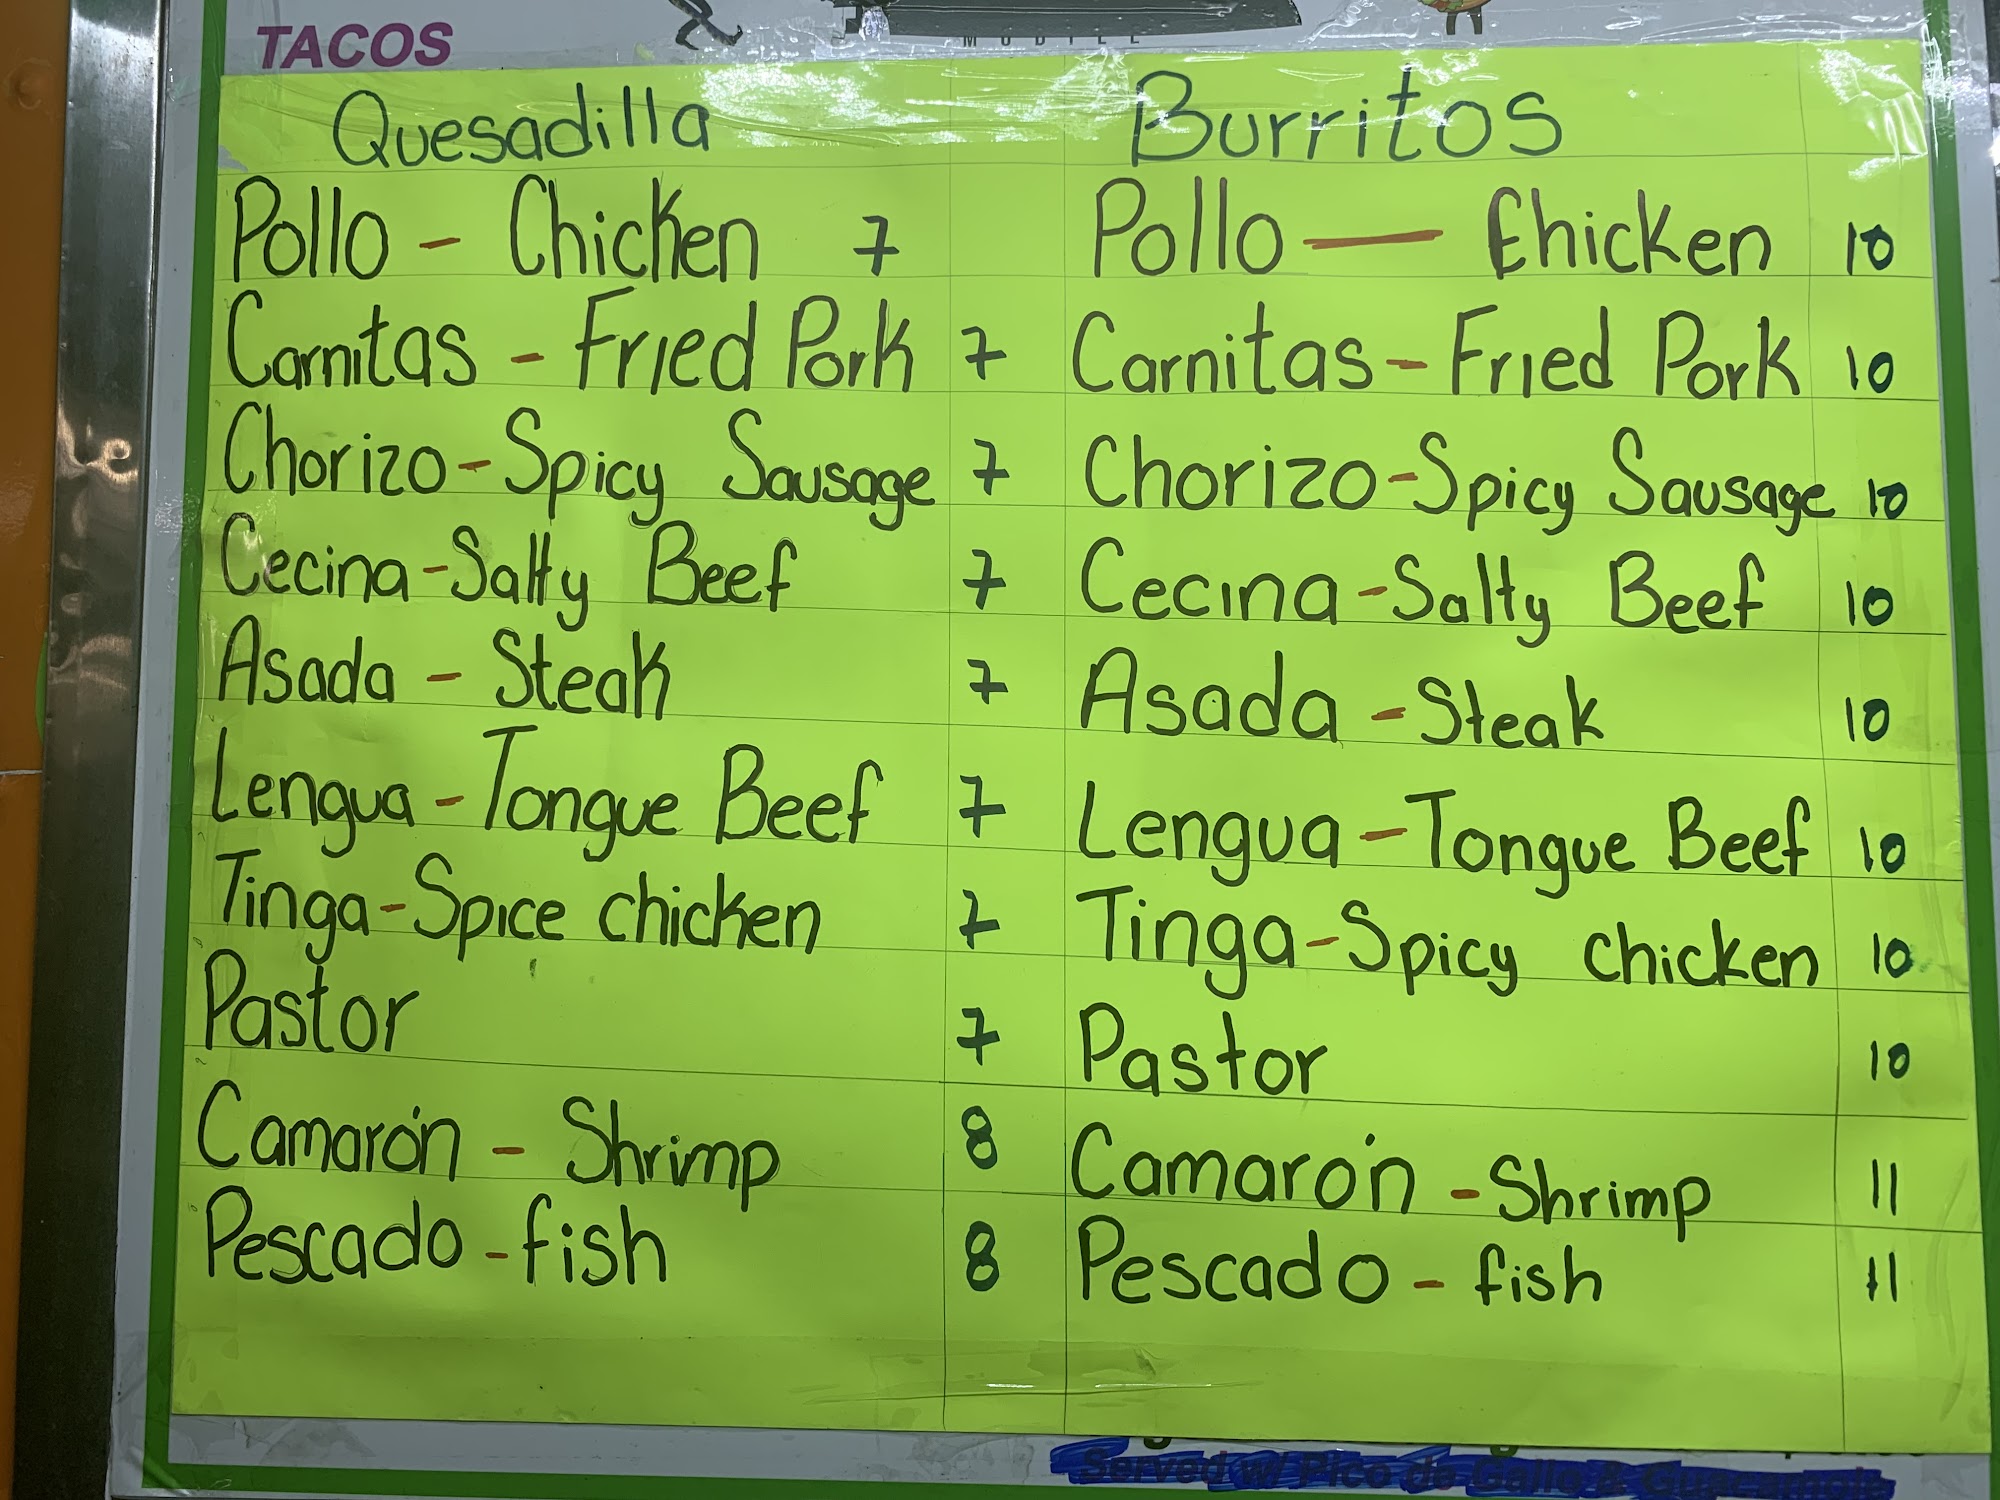 TACOS
MOBILE
Quesadilla
Pollo - Chicken 7
Carnitas - Fried Pork 7
Chorizo - Spicy Sausage 7
Cecina - Salty Beef 7
Asada - Steak 7
Lengua - Tongue Beef 7
Tinga - Spice chicken 7
Pastor 7
Camarón - Shrimp 8
Pescado - fish 8
Burritos
Pollo - Chicken 10
Carnitas - Fried Pork 10
Chorizo - Spicy Sausage 10
Cecina - Salty Beef 10
Asada - Steak 10
Lengua - Tongue Beef 10
Tinga - Spicy chicken 10
Pastor 10
Camarón - Shrimp 11
Pescado - fish 11
Served w/ Pico de Gallo & Guacamole